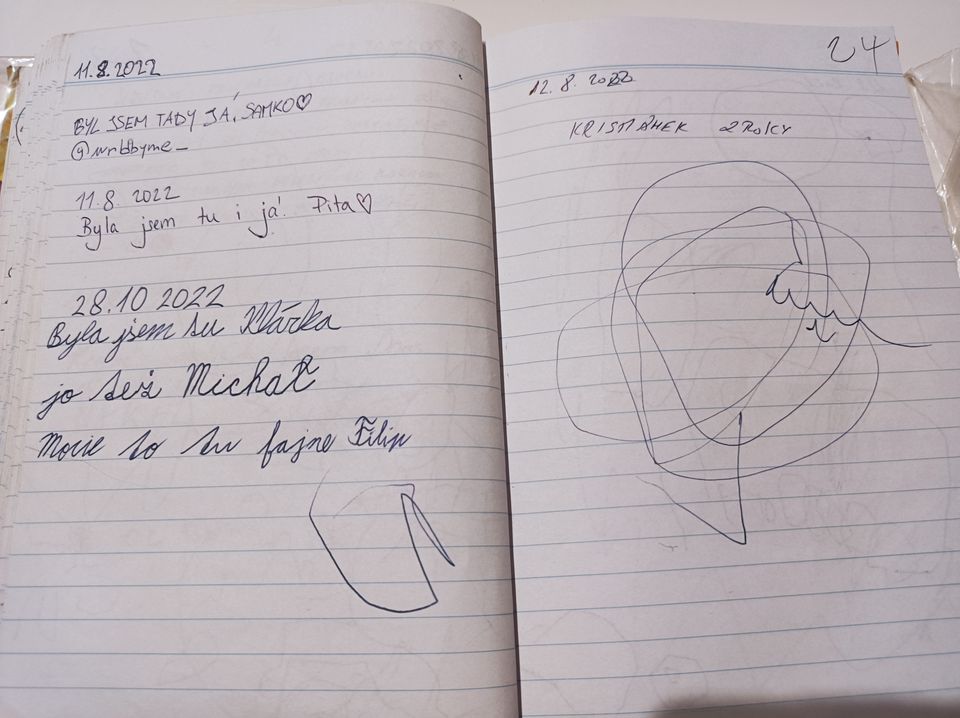 11.8.2022
BYL JSEM TADY JÁ, SAMKO♡
11.8. 2022
Byla jsem tu i já! Pita♡
28.10 2022
Byla jsem tu Klárka
jo tež Michal
to tu fajne Filip
24
12. 8. 2022
KRISTIÁNEK 2 ROKY